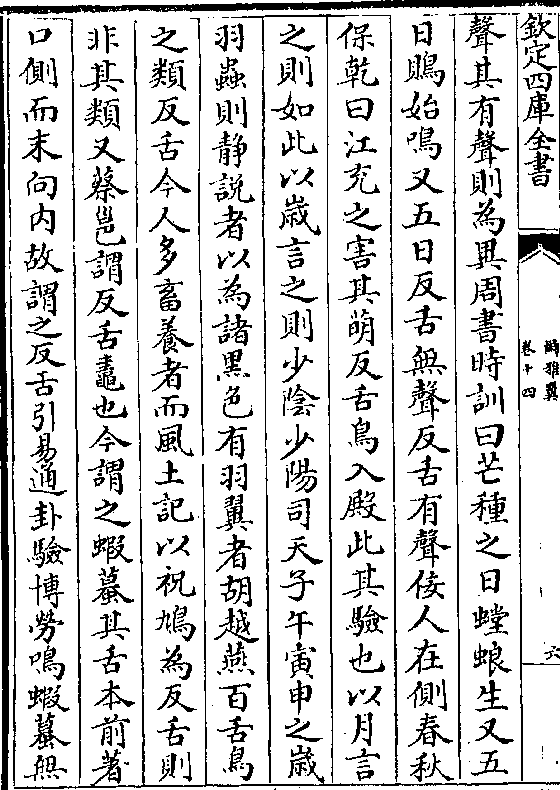 欽定四庫全書
爾雅翼
卷十四
六
聲其有聲則為異周書時訓曰芒種之日螳蜋生又五
日鵙始鳴又五日反舌無聲反舌有聲佞人在側春秋
保乾曰江充之害其萌反舌鳥入殿此其驗也以月言
之則如此以歲言之則少陰少陽司天子午寅申之歲
羽蟲則静説者以為諸黑色有羽翼者胡越燕百舌鳥
之類反舌今人多畜養者而風土記以祝鳩為反舌則
非其類又蔡邕謂反舌鼃也今謂之蝦蟇其舌本前著
口側而末向内故謂之反舌引易通卦驗博勞鳴蝦蟇無